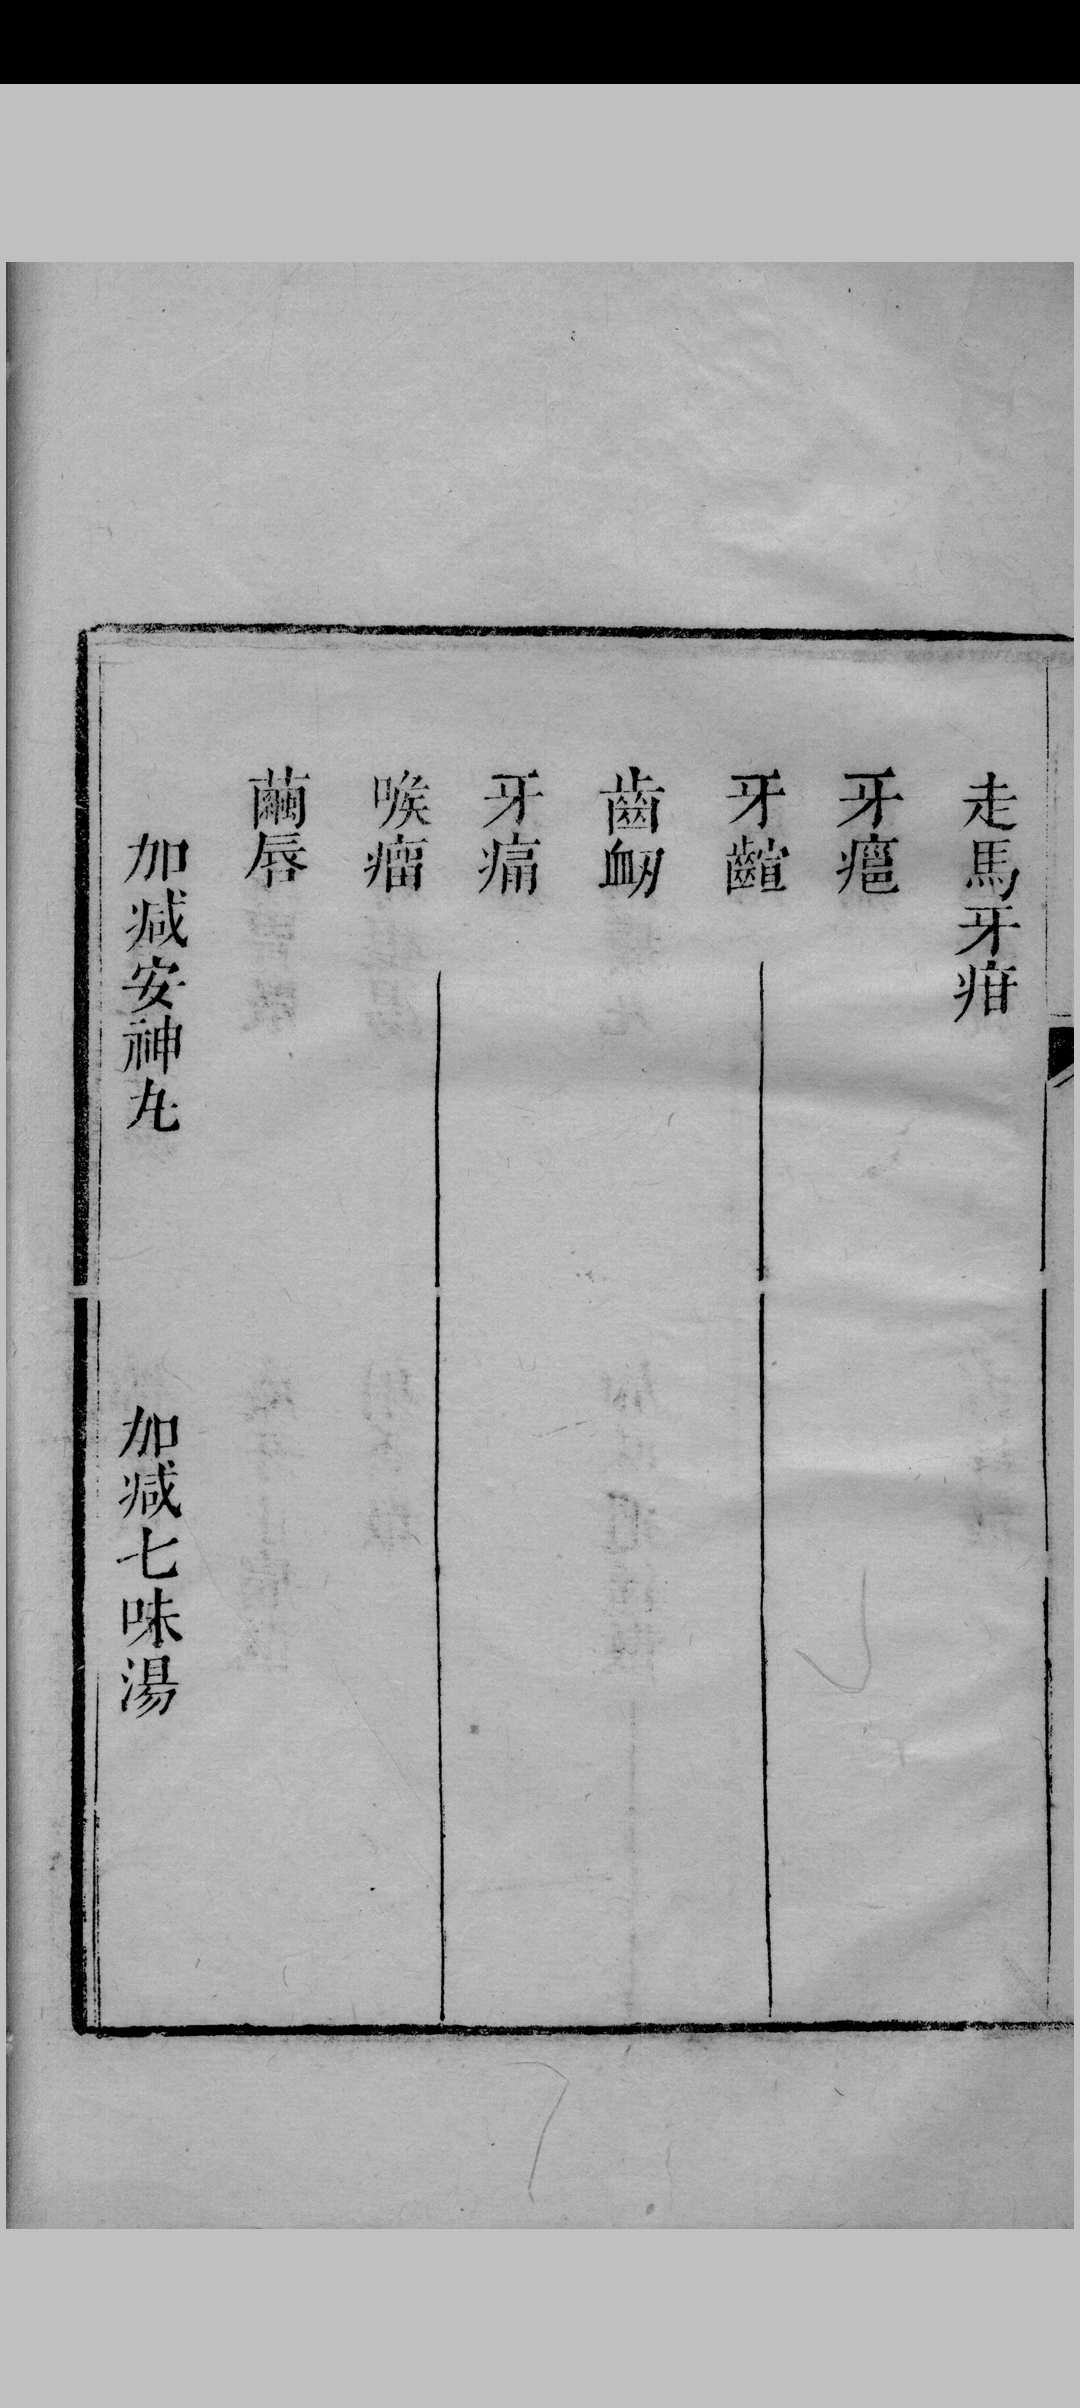 走馬牙疳
牙㿈
牙
齒衂
牙痛
喉瘤
繭唇
加减安神丸
加减七味湯